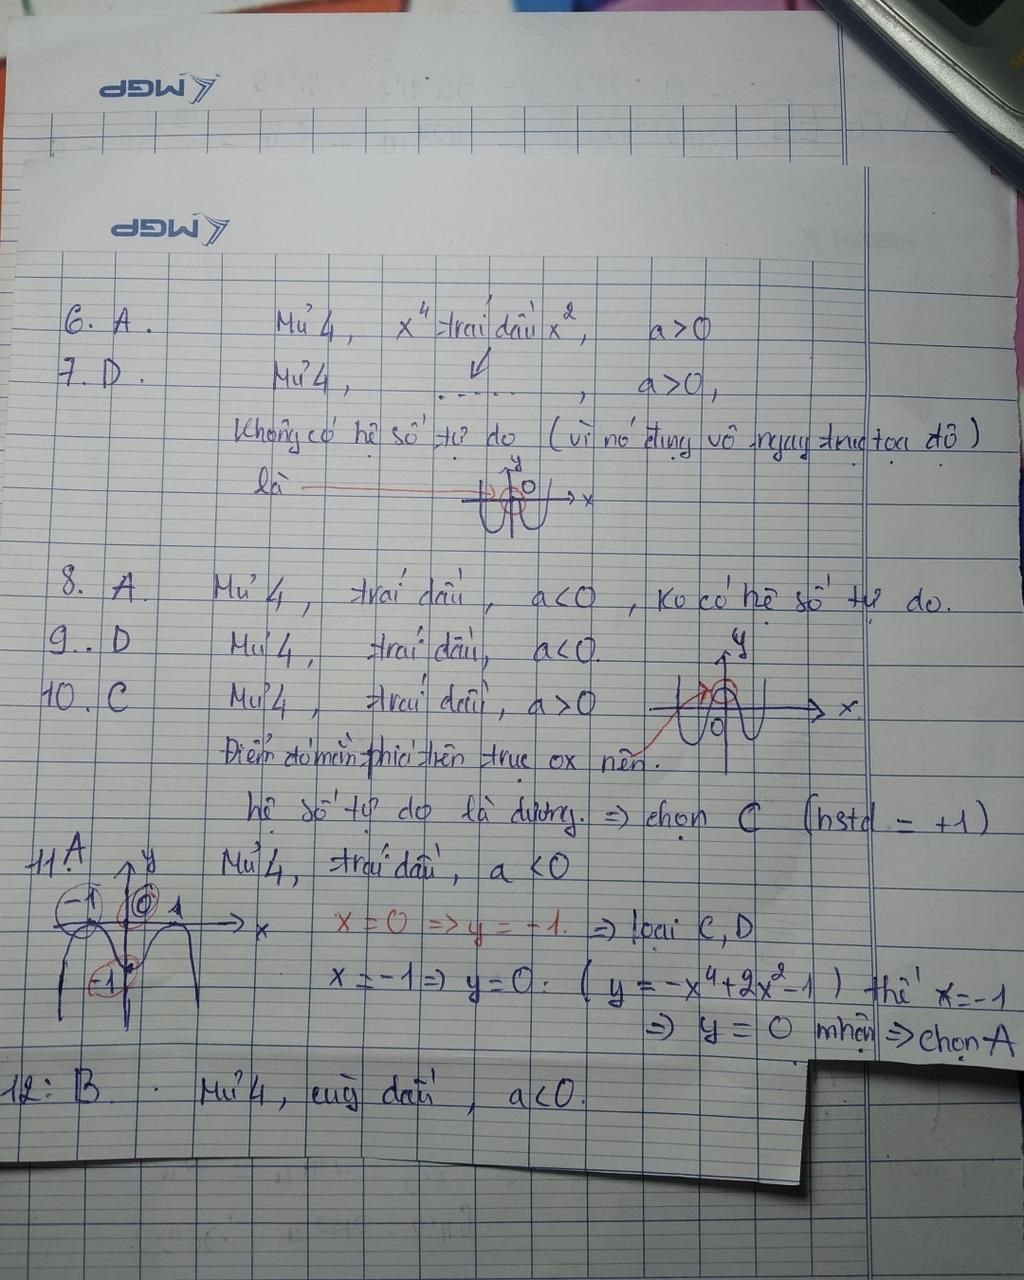 MGP
MGP
6. A. Mũ 4, x⁴ trái dấu x², a>0
7. D. Mũ 4, ......., a>0,
Không có hệ số tự do (vì nó đụng vô ngay trục tọa độ)
là
y
O
x
8. A. Mũ 4, trái dấu, a<0, ko có hệ số tự do.
9.. D Mũ 4, trái dấu, a<0.
10. C Mũ 4, trái dấu, a>0
y
x
O
Điểm đó nằm phía trên trục ox nên.
hệ số tự do là dương. => chọn C (hstd = +1)
11. A Mũ 4, trái dấu, a<0
y
-1 0 1
x
-1
x=0 => y=-1. => loại C, D
x=-1 => y=0. (y=-x⁴+2x²-1) thế x=-1
=> y=0 nhận => chọn A
12: B. Mũ 4, cùg dấu, a<0.